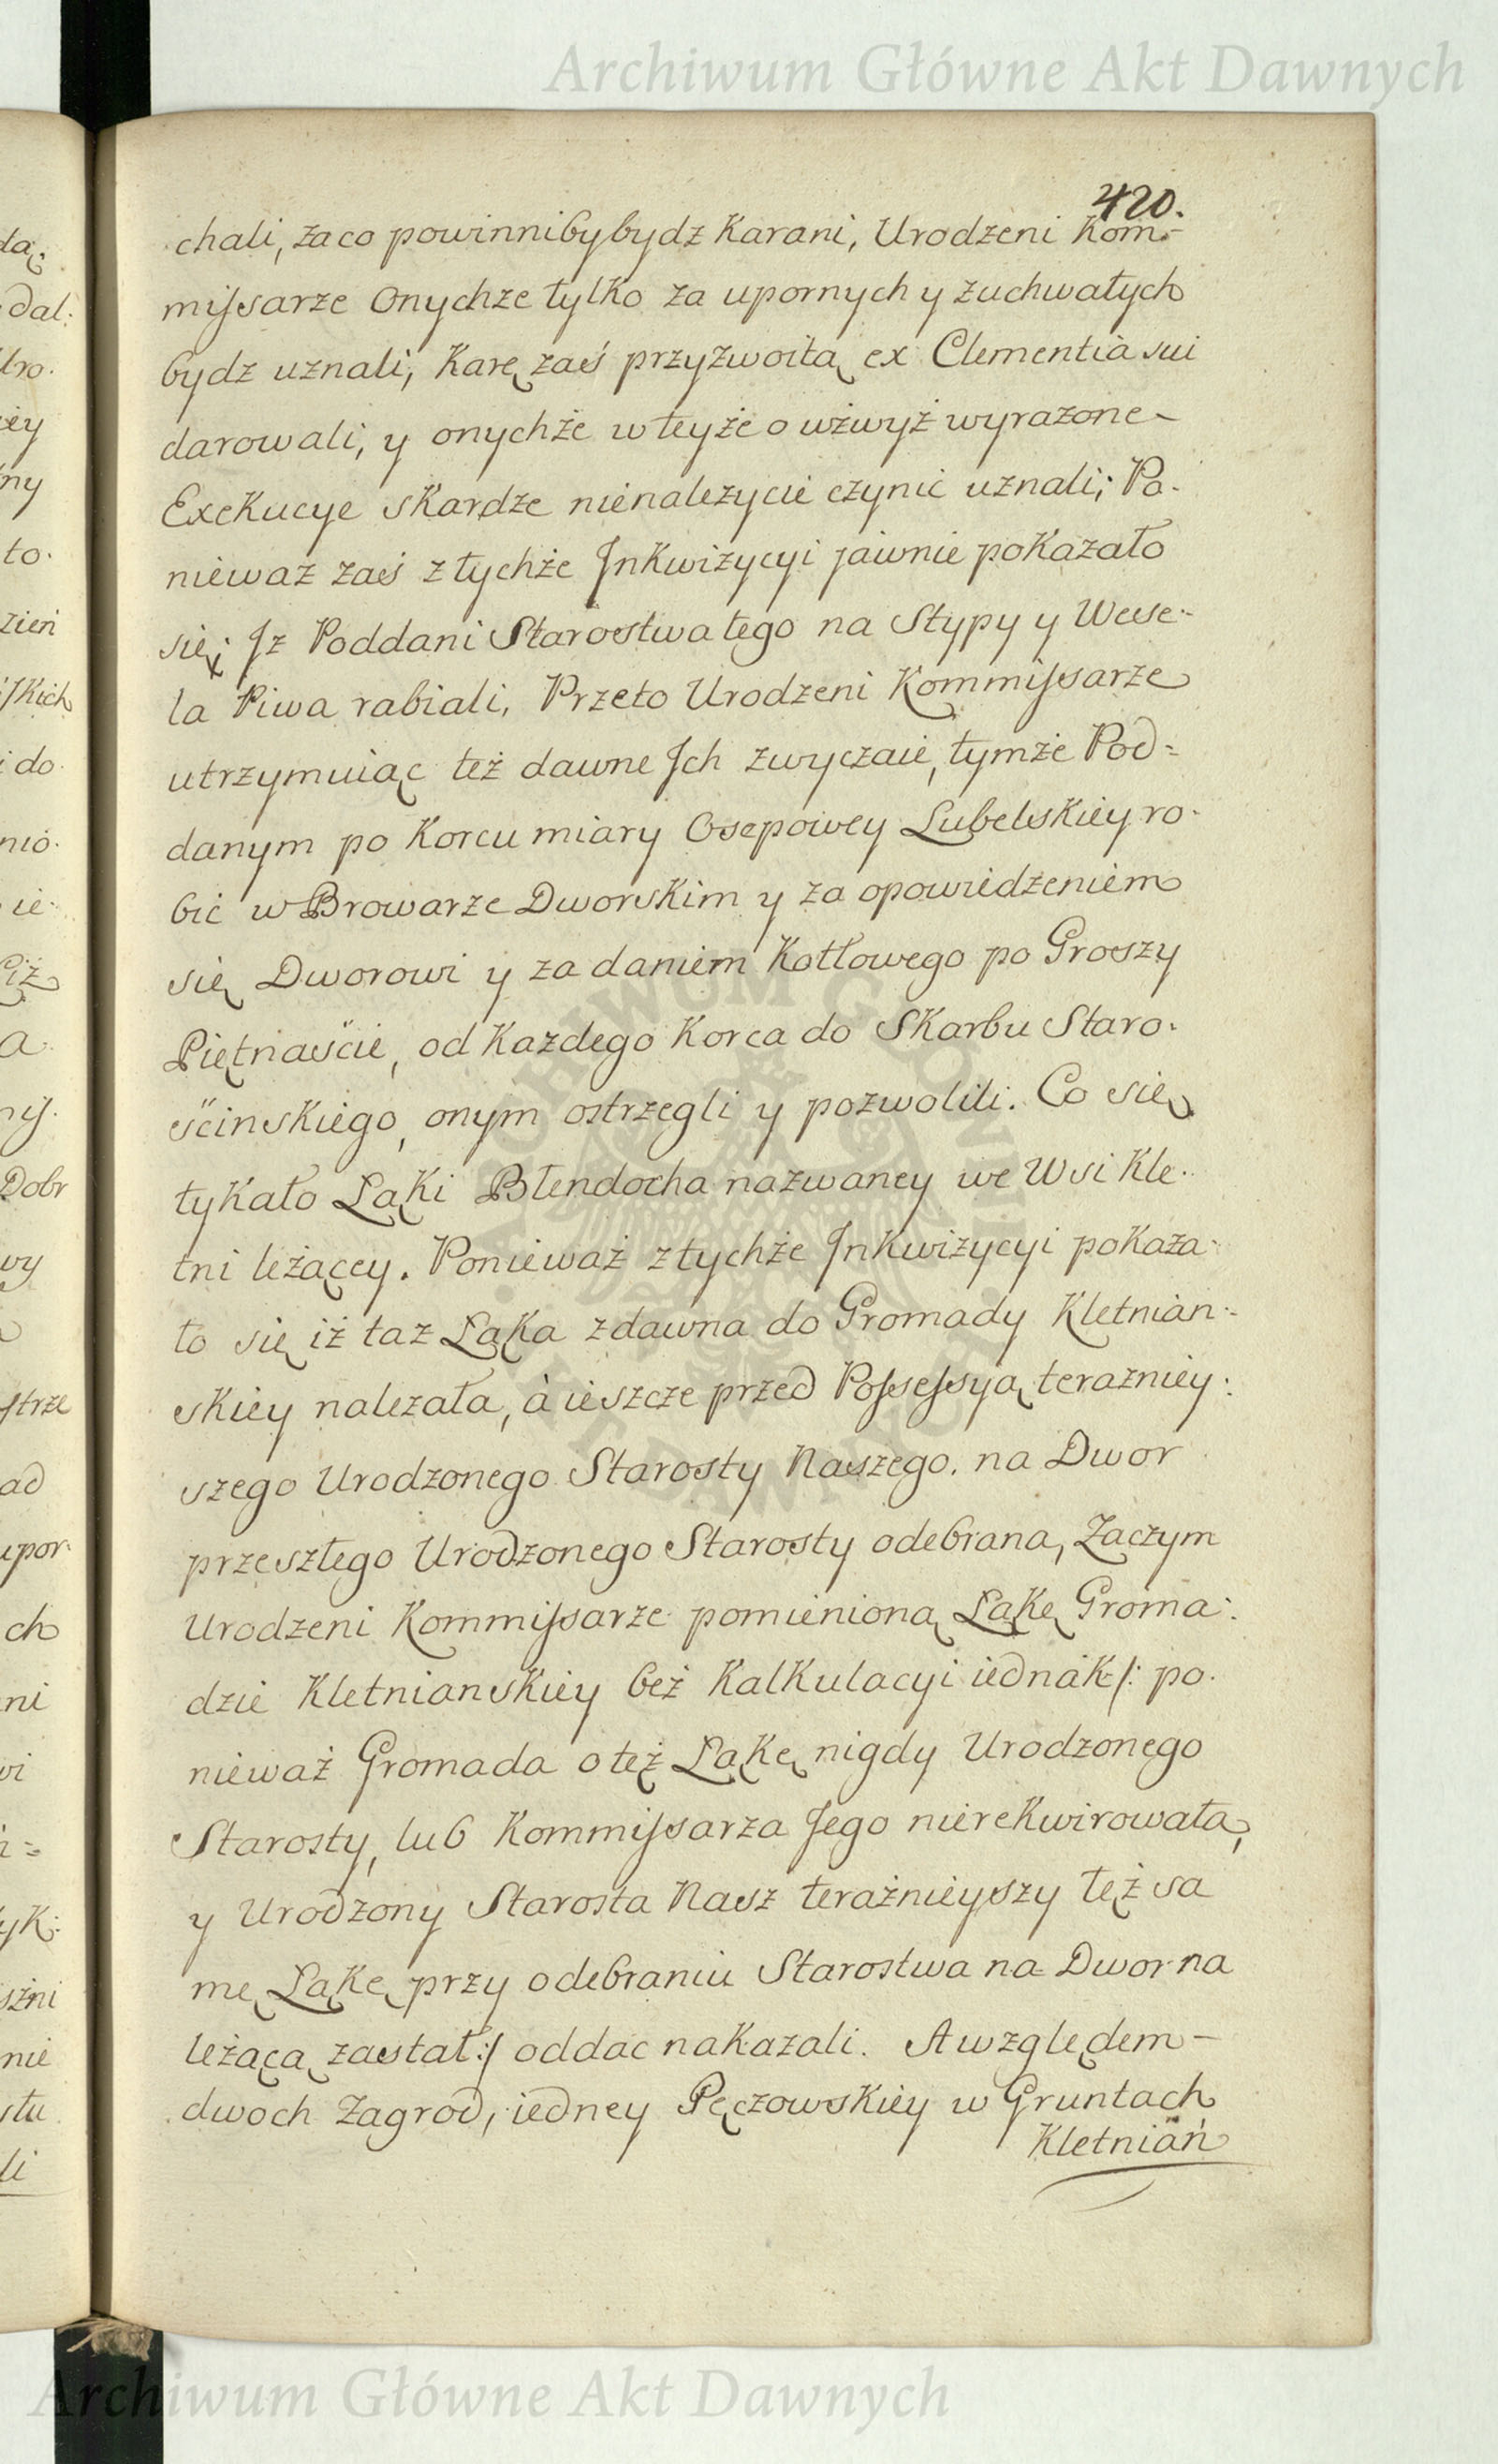 Archiwum Główne Akt Dawnych
420.
chali, zaco powinniby bydz Karani, Urodzeni Kom-
missarze Onychze tylko za upornych y zuchwałych
bydz uznali, Karę zaś przyzwoitą ex Clementia sui
darowali, y onychże w teyże o wżwyż wyrazone-
Exekucye skardze nienalezycie czynić uznali; Po-
nieważ zaś z tychże Inkwizycyi jawnie pokazało
się; Iz Poddani Starostwa tego na Stypy y Wese-
la Piwa rabiali, Przeto Urodzeni Kommissarze
utrzymuiąc też dawne Ich zwyczaie, tymże Pod=
danym po Korcu miary Osepowey Lubelskiey ro-
bić w Browarze Dworskim y za opowiedzeniem
się Dworowi y za daniem Kotłowego po Groszy
Piętnaście, od Kazdego Korca do Skarbu Staro-
ścinskiego, onym ostrzegli y pozwolili. Co się
tykało Łąki Błendocha nazwaney we Wsi Kle-
tni leżącey. Ponieważ z tychże Inkwizycyi pokaza-
ło się iż taz Łąka zdawna do Gromady Kletnian-
skiey nalezała, à ieszcze przed Possessyą terazniey:
szego Urodzonego Starosty Naszego. na Dwor
przeszłego Urodzonego Starosty odebrana, Zaczym
Urodzeni Kommissarze pomienioną Łąkę Groma:
dzie Kletnianskiey beż Kalkulacyi iednak /: po-
nieważ Gromada o też Łąkę nigdy Urodzonego
Starosty, lub Kommissarza Jego nierekwirowała,
y Urodzony Starosta Nasz terażnieyszy też sa
mę Łąkę przy odebraniu Starostwa na Dwor na
leżącą zastał :/ oddac nakazali. A względem-
dwoch Zagrod, iedney Pęczowskiey w Gruntach
Kletniań
ARCHIWUM GŁÓWNE AKT DAWNYCH
Archiwum Główne Akt Dawnych